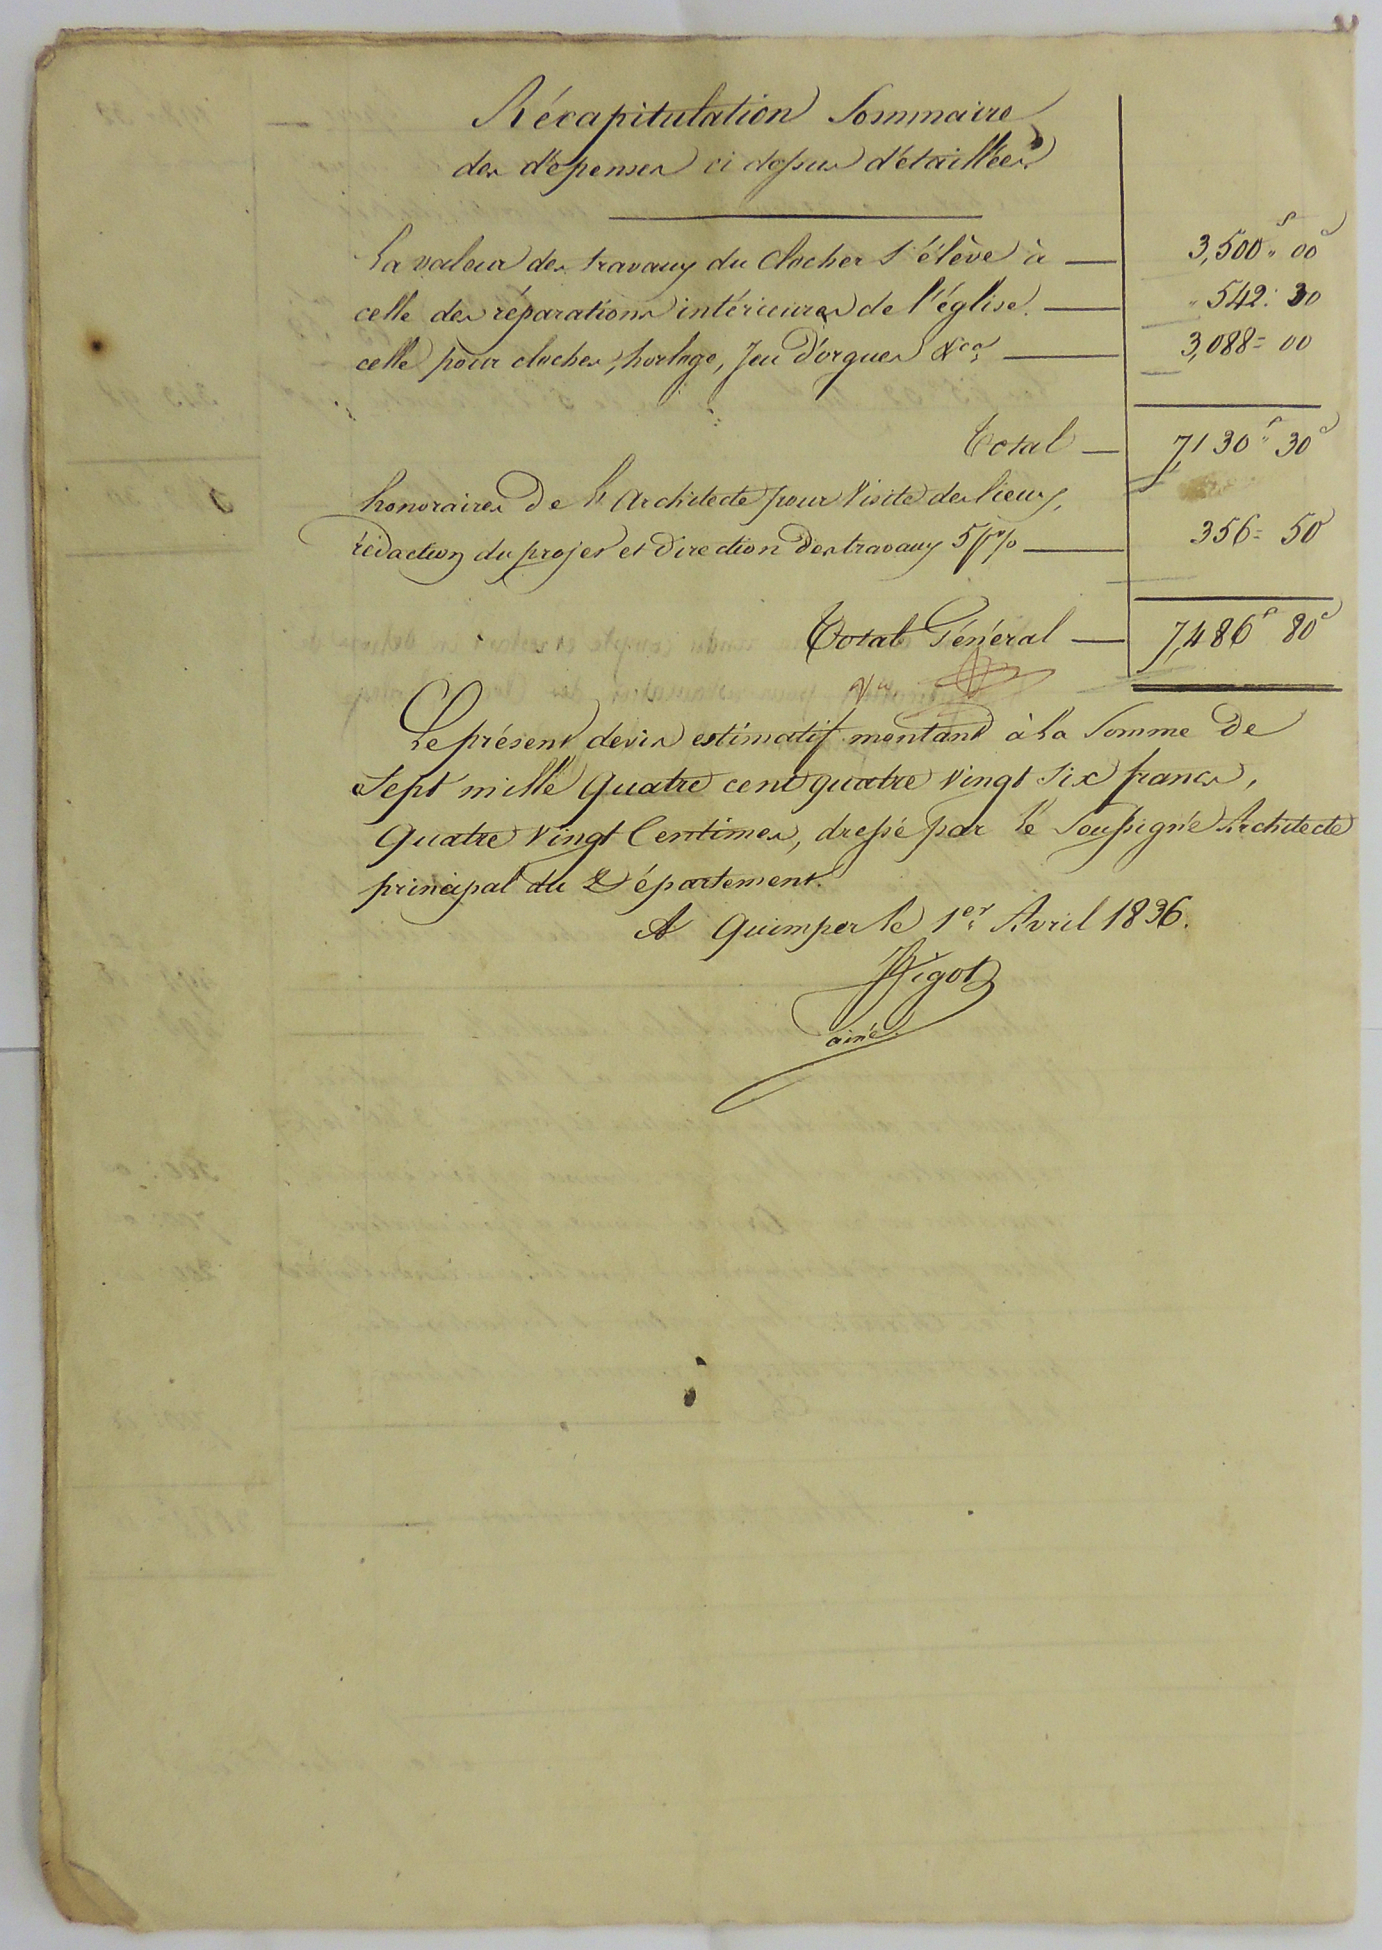 Récapitulation Sommaire
des dépenses ci dessus détaillées
La valeur des travaux du clocher s'élève à — 3,500f " 00c
celle des réparations intérieures de l'église. — " 542: 30
celle pour cloches, horloge, Jeu d'orgues &ca — 3,088 = 00
Total — 7,130f " 30c
honoraires De l'Architecte pour Visite des lieux,
rédaction du projet et Direction Des travaux 5 p% — 356 = 50
Total Général — 7,486f 80c
Le présent devis estimatif montant à la Somme De
Sept mille quatre cent quatre vingt six francs,
quatre vingt Centimes, dressé par le Soussigné Architecte
principal du Département.
A Quimper le 1er Avril 1836.
Bigot
ainé